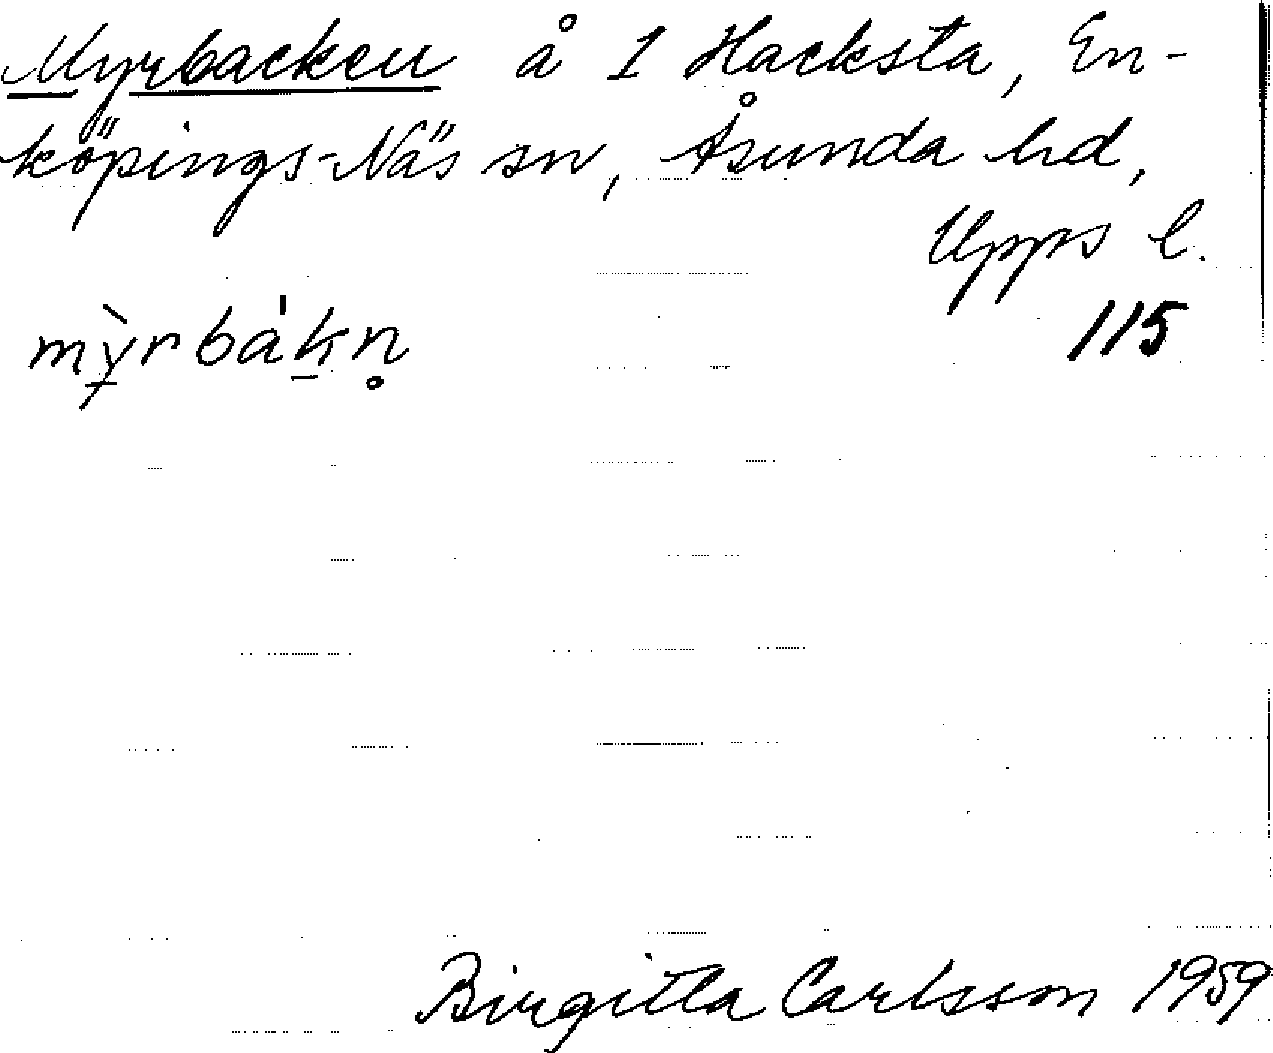 Myrbacken å 1 Hacksta, En-
köpings-Näs sn, Åsunda hd,
Upps l.
115
mỳrbákn̥
Birgitta Carlsson 1959